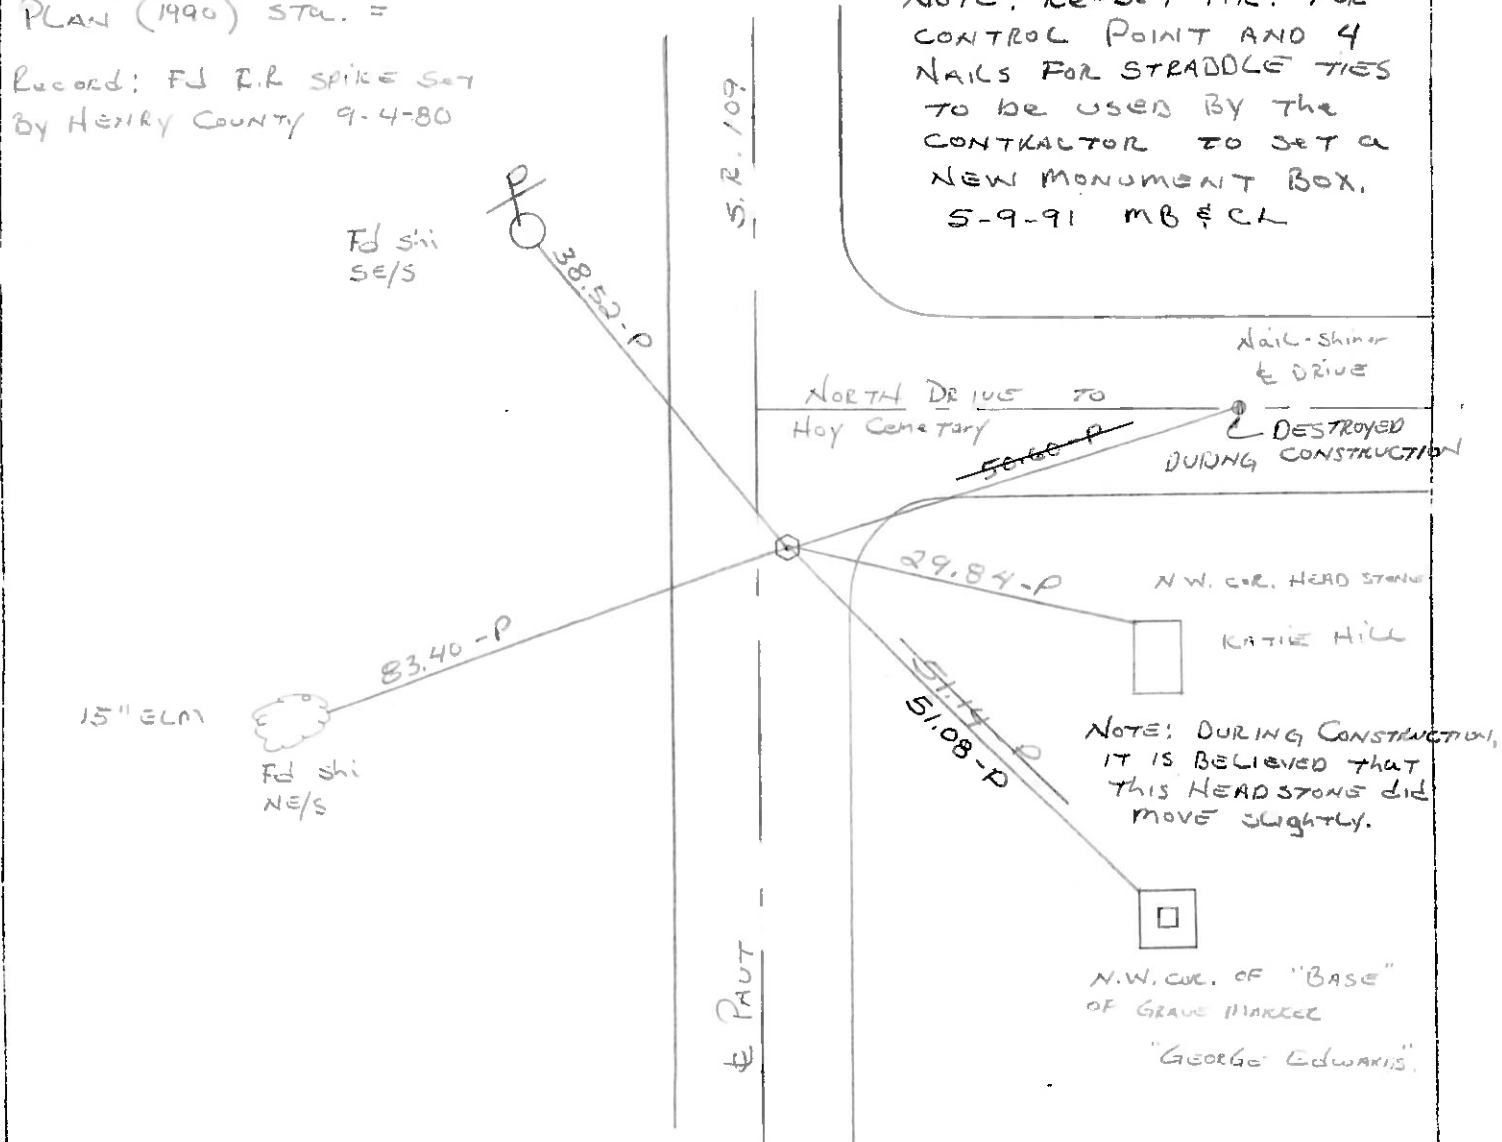 PLAN (1990) STA. =
Record: Fd R.R SPIKE Set
By HENRY COUNTY 9-4-80
CONTROL POINT AND 4
NAILS FOR STRADDLE TIES
TO be USED BY The
CONTRACTOR TO SET a
NEW MONUMENT BOX.
5-9-91 MB & CL
S.R. 109
P
Fd shi
SE/S
38.52-P
Nail-Shiner
℄ DRIVE
NORTH DRIVE TO
Hoy Cemetary
50.60-P
DESTROYED
DURING CONSTRUCTION
29.84-P
N.W. COR. HEAD STONE
KATIE HILL
83.40-P
15" ELM
Fd shi
NE/S
51.14 P
51.08-P
NOTE: DURING CONSTRUCTION,
IT IS BELIEVED that
This HEADSTONE did
MOVE slightly.
℄ PAVT
N.W. COR. OF "BASE"
OF GRAVE MARKER
"GEORGE EdWARDS".